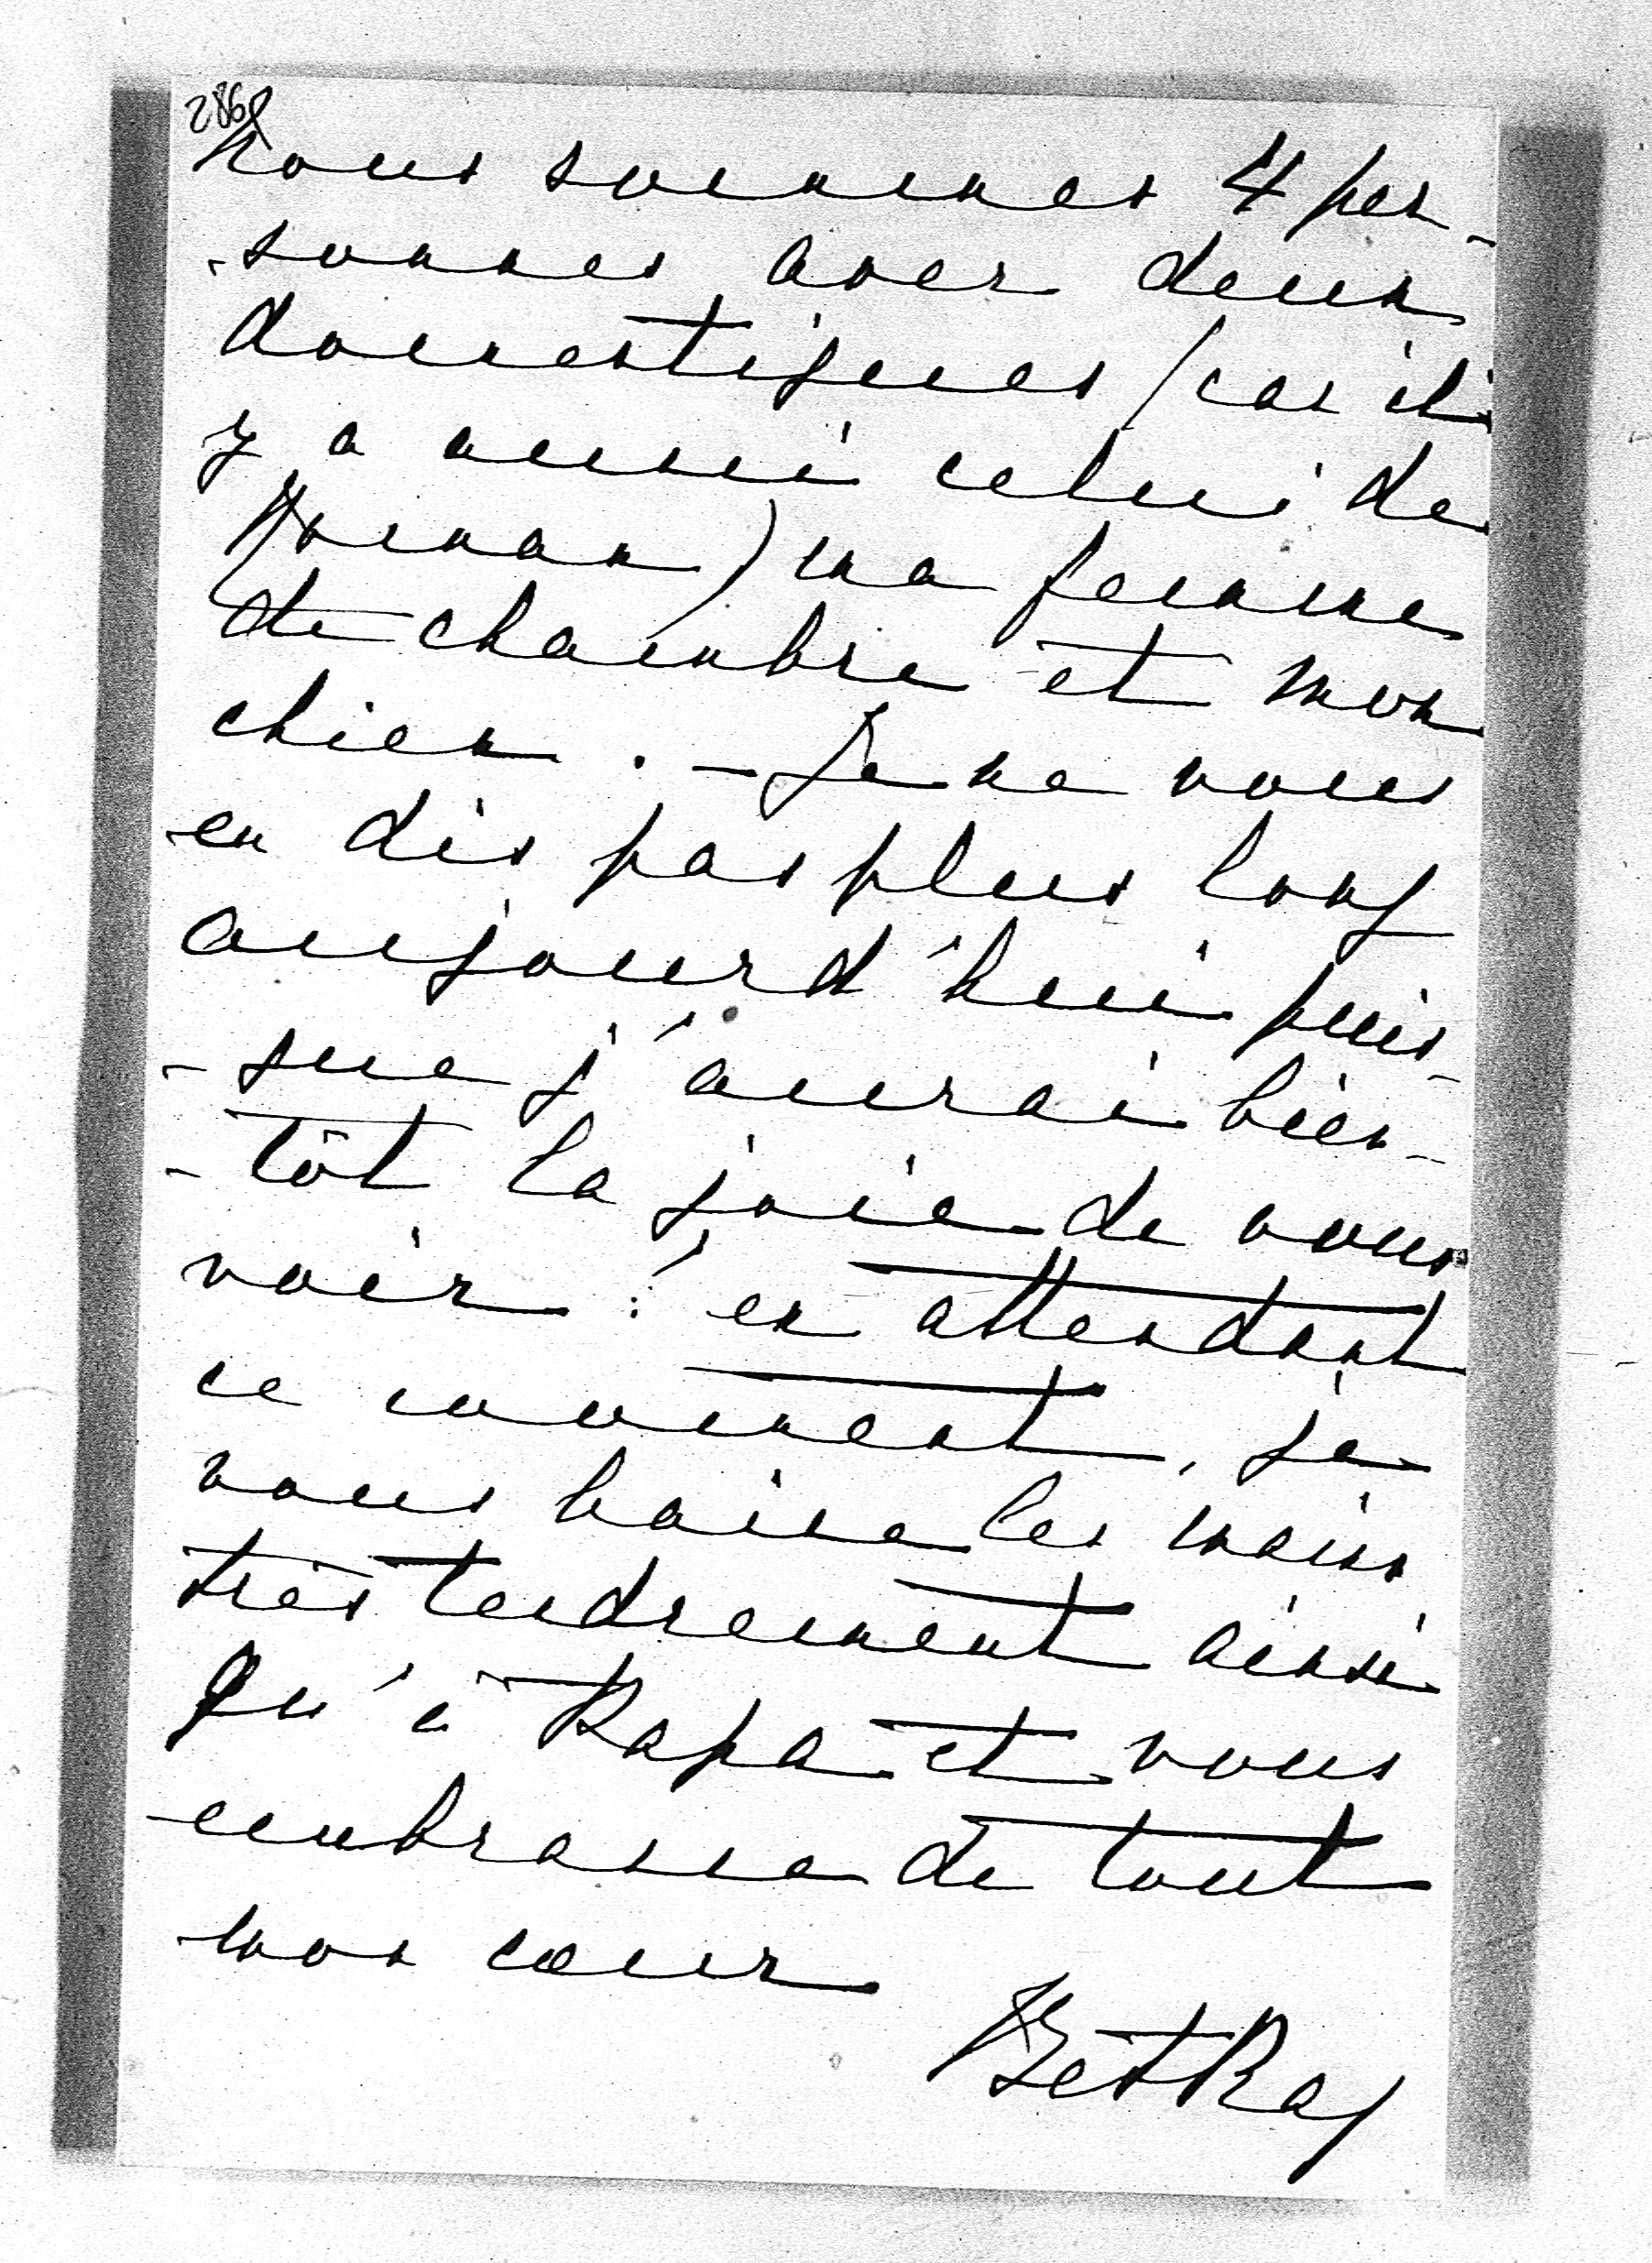 286
Nous sommes 4 per-
-sonnes avec deux
domestiques (car il
y a aussi celui de
) ma femme
de chambre et mon
chien. - Je ne vous
en dis pas plus long
aujourd'hui puis-
-que j'aurai bien-
-tôt la joie de vous
voir : en attendant
ce moment, je
vous baise les mains
très tendrement ainsi
qu'à Papa et vous
embrasse de tout
mon cœur